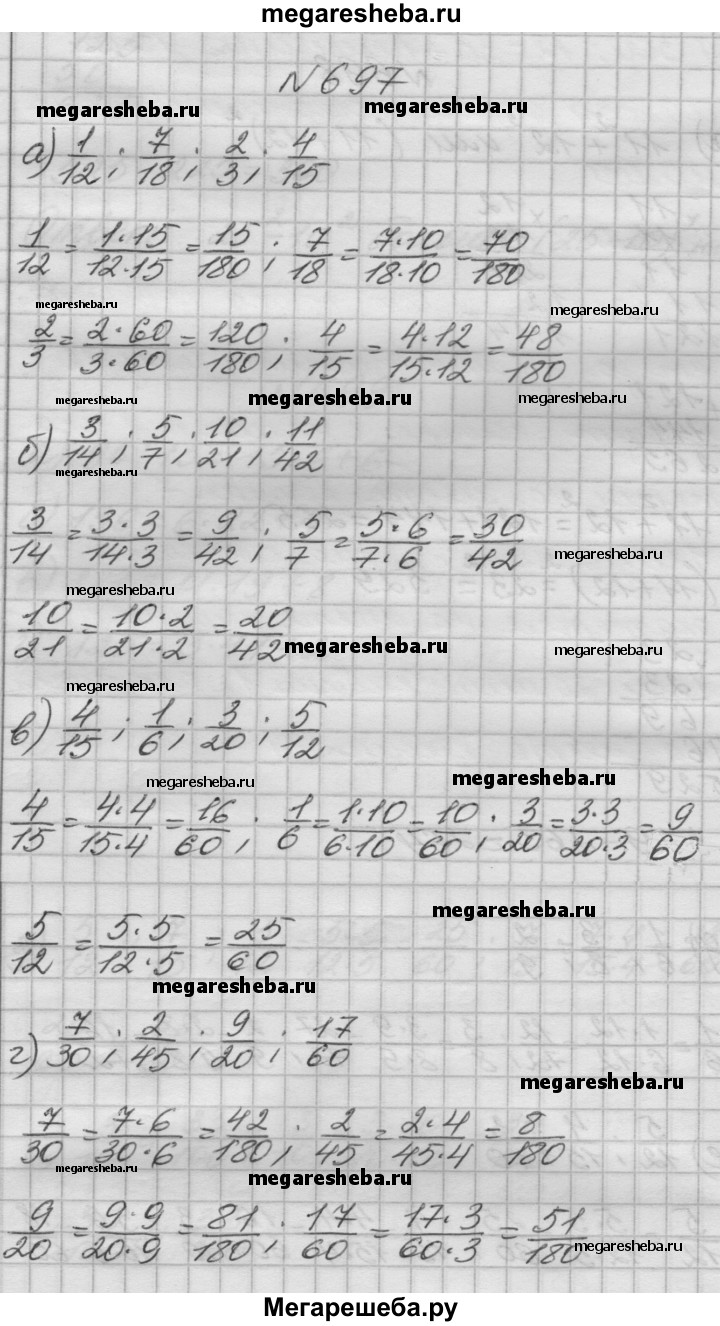 megaresheba.ru
№697
megaresheba.ru megaresheba.ru
а) 1/12; 7/18; 2/3; 4/15
1/12 = 1·15/12·15 = 15/180; 7/18 = 7·10/18·10 = 70/180
megaresheba.ru megaresheba.ru
2/3 = 2·60/3·60 = 120/180; 4/15 = 4·12/15·12 = 48/180
megaresheba.ru megaresheba.ru megaresheba.ru
б) 3/14; 5/7; 10/21; 11/42
megaresheba.ru
3/14 = 3·3/14·3 = 9/42; 5/7 = 5·6/7·6 = 30/42
megaresheba.ru
megaresheba.ru
10/21 = 10·2/21·2 = 20/42
megaresheba.ru megaresheba.ru
megaresheba.ru
в) 4/15; 1/6; 3/20; 5/12
megaresheba.ru megaresheba.ru
4/15 = 4·4/15·4 = 16/60; 1/6 = 1·10/6·10 = 10/60; 3/20 = 3·3/20·3 = 9/60
megaresheba.ru
5/12 = 5·5/12·5 = 25/60
megaresheba.ru
г) 7/30; 2/45; 9/20; 17/60
megaresheba.ru
7/30 = 7·6/30·6 = 42/180; 2/45 = 2·4/45·4 = 8/180
megaresheba.ru megaresheba.ru
9/20 = 9·9/20·9 = 81/180; 17/60 = 17·3/60·3 = 51/180
megaresheba.ru
Мегарешеба.ру